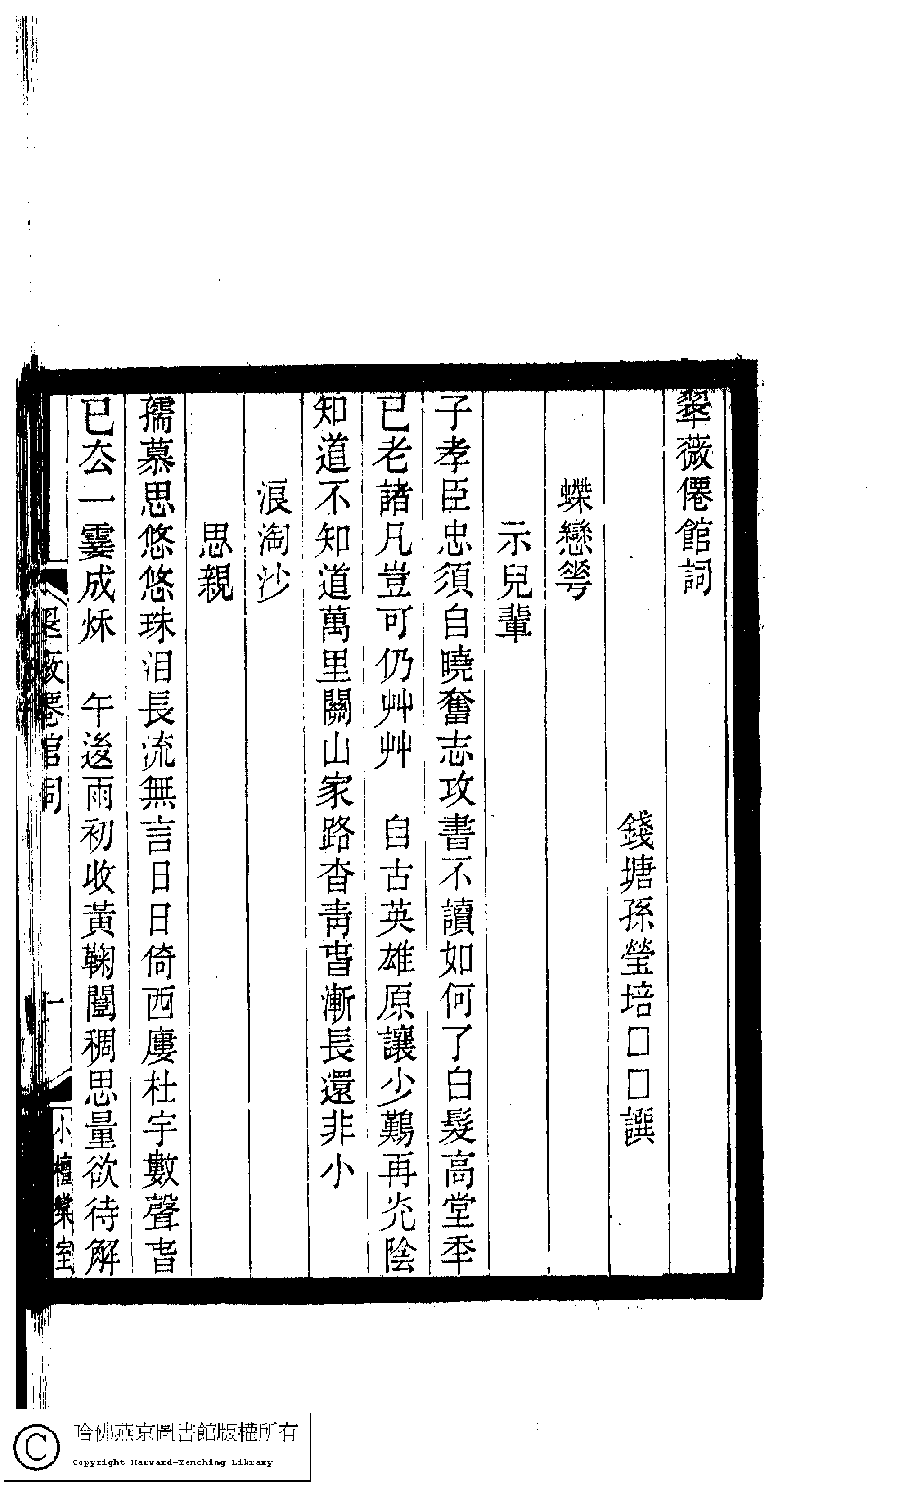 翠薇僊館詞
錢塘孫瑩培囗囗譔
蝶戀蕚
示兒輩
子孝臣忠須自曉奮志攻書不讀如何了白髮高堂秊
已老諸凡豈可仍艸艸　自古英雄原讓少鷬再光陰
知道不知道萬里關山家路杳青萅漸長還非小
浪淘沙
思親
孺慕思悠悠珠泪長流無言日日倚西廔杜宇數聲萅
已厺一霎成秌　午後雨初收黃鞠闓稠思量欲待解
翠薇僊館詞
一
小檀欒室
哈佛燕京圖書館版權所有
Copyright Harvard-Yenching Library